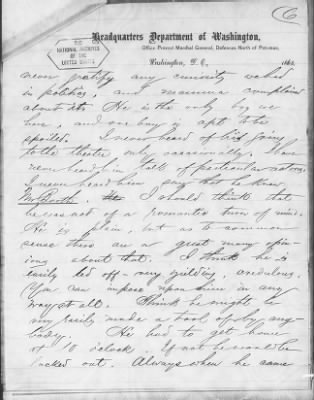 6
THE
NATIONAL ARCHIVES
OF THE
UNITED STATES
Headquarters Department of Washington,
Office Provost Marshal General, Defences North of Potomac,
Washington, D. C., 186
never gratify any curiosity
in politics, and mamma complains
about it. He is the only boy we
have, and one boy is apt to be
spoiled. I never heard of his going
to the theatre only occasionally. I have
never heard him talk of particular actors.
I never heard him say that he knew
Mr Booth. I should think that
he was not of a romantic turn of mind.
He is plain, but as to common
sense there are a great many opin-
ions about that. I think he is
easily led off - very yielding, credulous.
You can impose upon him in any
way at all. Think he might be
very easily made a tool of by any-
body. He had to get home
at 10 o'clock. If not he would be
locked out. Always when he came